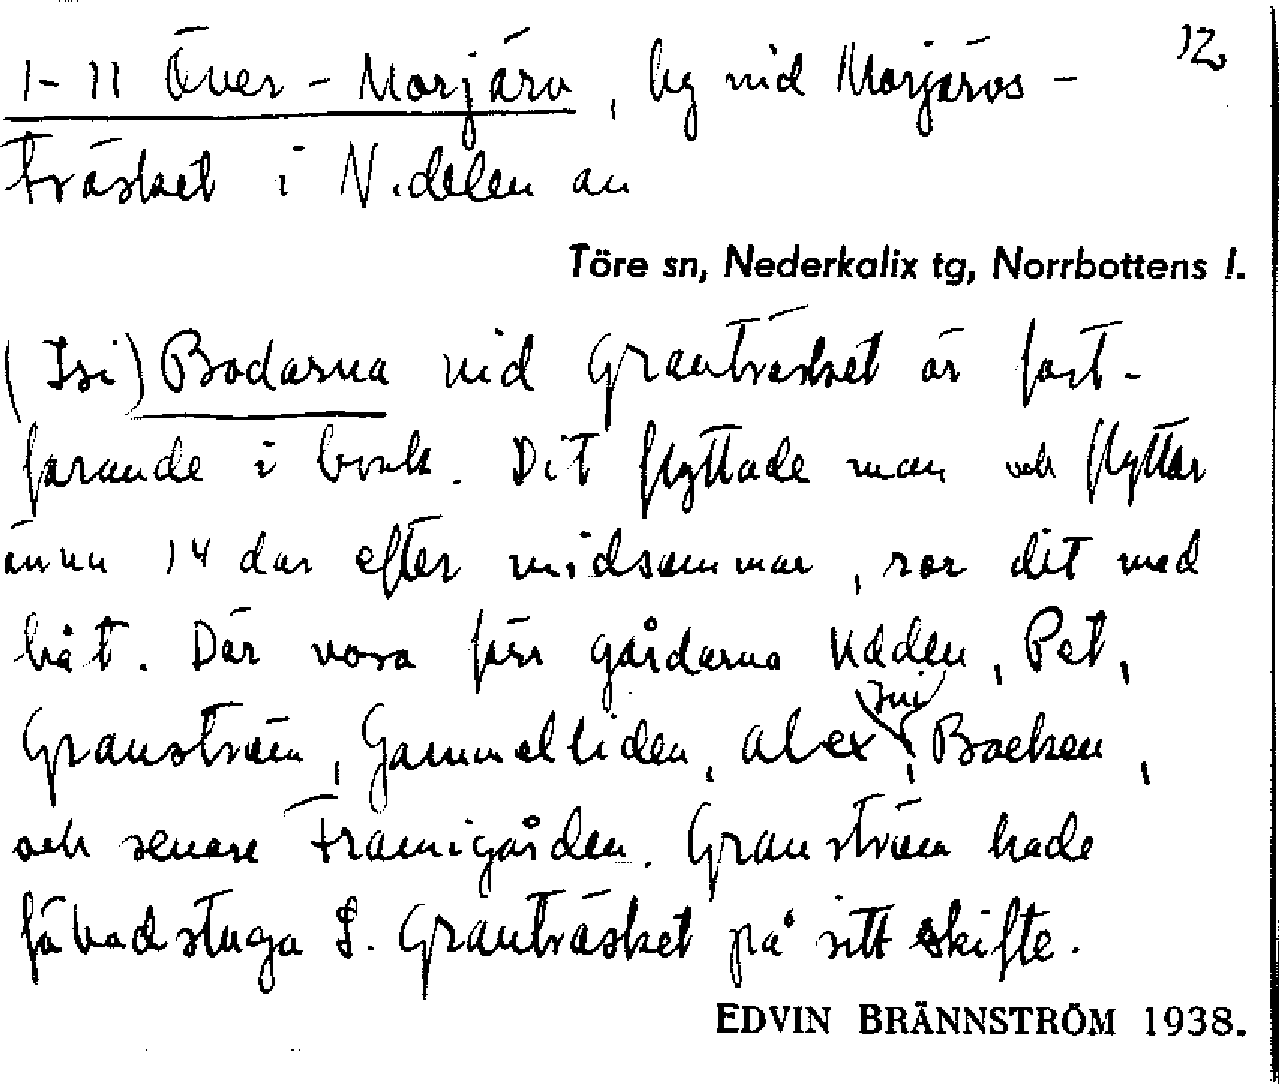 12
1-11 Över-Morjärv, by vid Morjärvs-
träsket i N. delen av
Töre sn, Nederkalix tg, Norrbottens l.
(Isi) Bodarna vid Granträsket är fort-
farande i bruk. Dit flyttade man och flyttar
ännu 14 dar efter midsommar, ror dit med
båt. Där vora förr gårdarna Udden, Pet,
Granström, Gammelliden, Alex, Backen,
och senare Framigården. Granström hade
fäbodstuga S. Granträsket på sitt skifte.
EDVIN BRÄNNSTRÖM 1938.